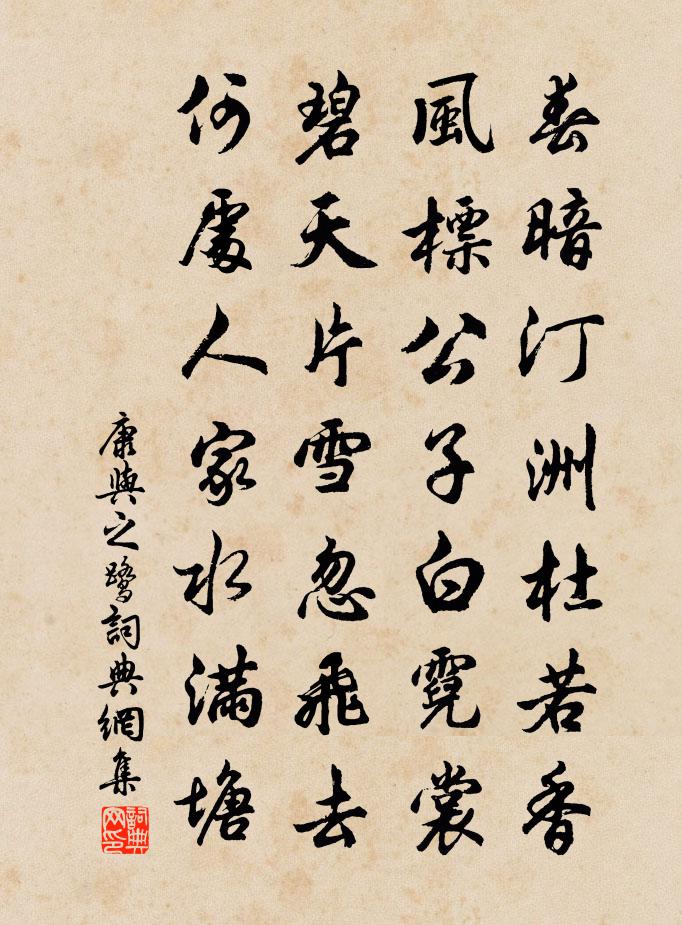 春暗汀洲杜若香
風標公子白霓裳
碧天片雪忽飛去
何處人家水滿塘
康與之鹭詞典網集
詞典网印